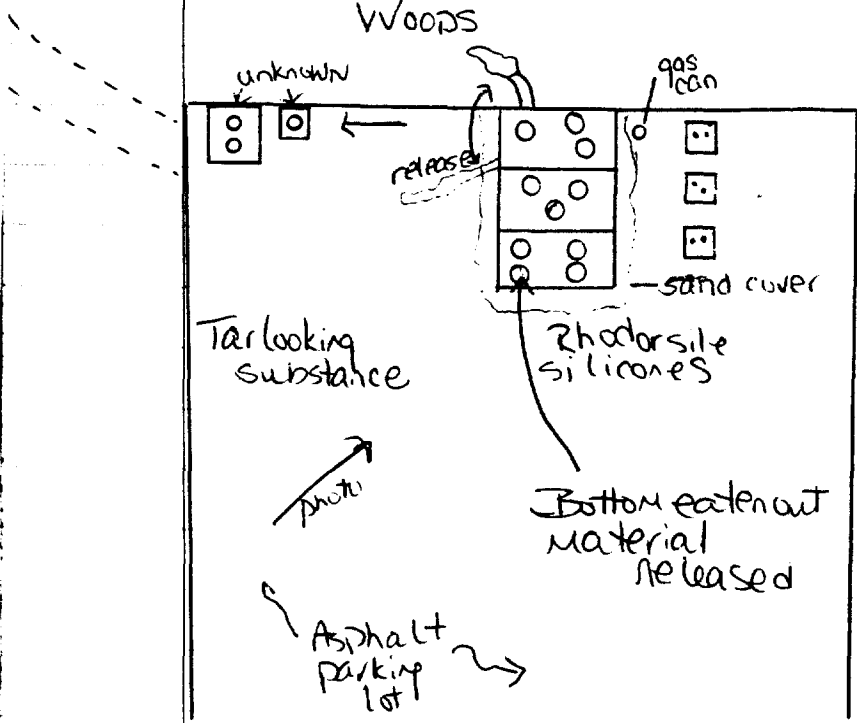 WOODS
unknown
gas
can
release
sand cover
Tarlooking
substance
Rhodorsile
silicones
photo
Bottom eaten out
Material
released
Asphalt
parking
lot